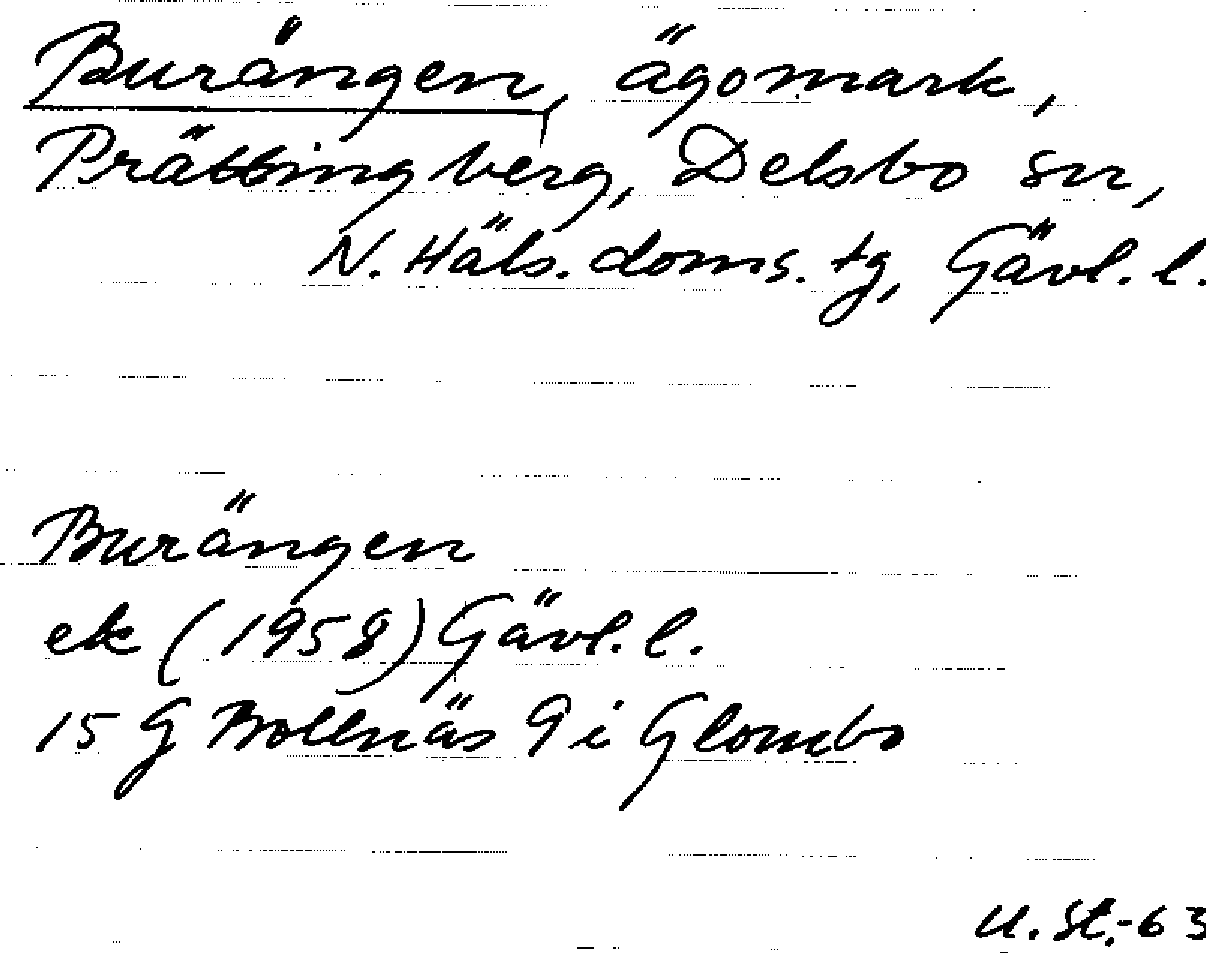 Burängen, ägomark,
Prästingberg, Delsbo sn,
N. Häls. doms. tg, Gävl. l.
Burängen
ek (1958) Gävl. l.
15 G Bollnäs 9 i Glombo
U. St.-63